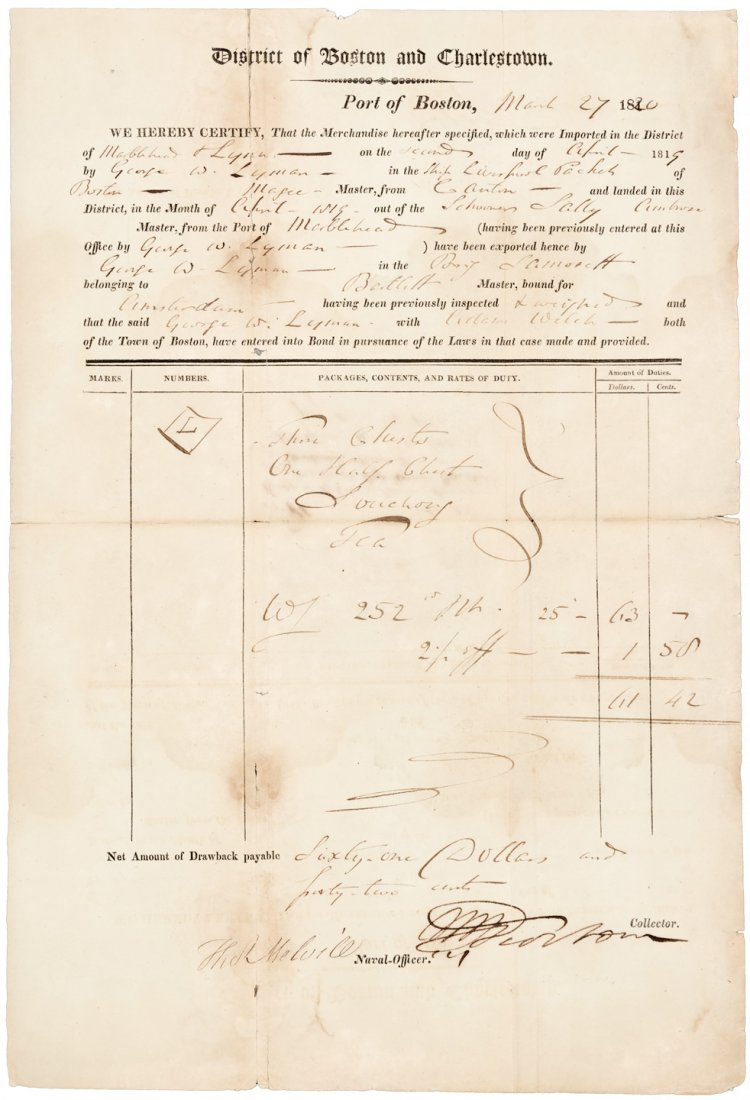 District of Boston and Charlestown.
Port of Boston, March 27 1820
WE HEREBY CERTIFY, That the Merchandise hereafter specified, which were Imported in the District
of Marblehead & Lynn on the Second day of April 1819
by George W. Lyman in the Ship Liverpool Packet of
Boston Magee Master, from Canton and landed in this
District, in the Month of April 1819 out of the Schooner Sally Ambrose
Master, from the Port of Marblehead (having been previously entered at this
Office by George W. Lyman ) have been exported hence by
George W. Lyman in the Brig Samosett
belonging to Bartlett Master, bound for
Amsterdam having been previously inspected & weighed and
that the said George W. Lyman with Adam Welch both
of the Town of Boston, have entered into Bond in pursuance of the Laws in that case made and provided.
MARKS. NUMBERS. PACKAGES, CONTENTS, AND RATES OF DUTY. Amount of Duties.
Dollars. Cents.
L Three Chests
One Half Chest
Souchong
Tea
252 25 63 -
2½ off 1 58
61 42
Net Amount of Drawback payable Sixty-one Dollars and
forty-two cents
Collector.
Thos Melvill Naval-Officer.